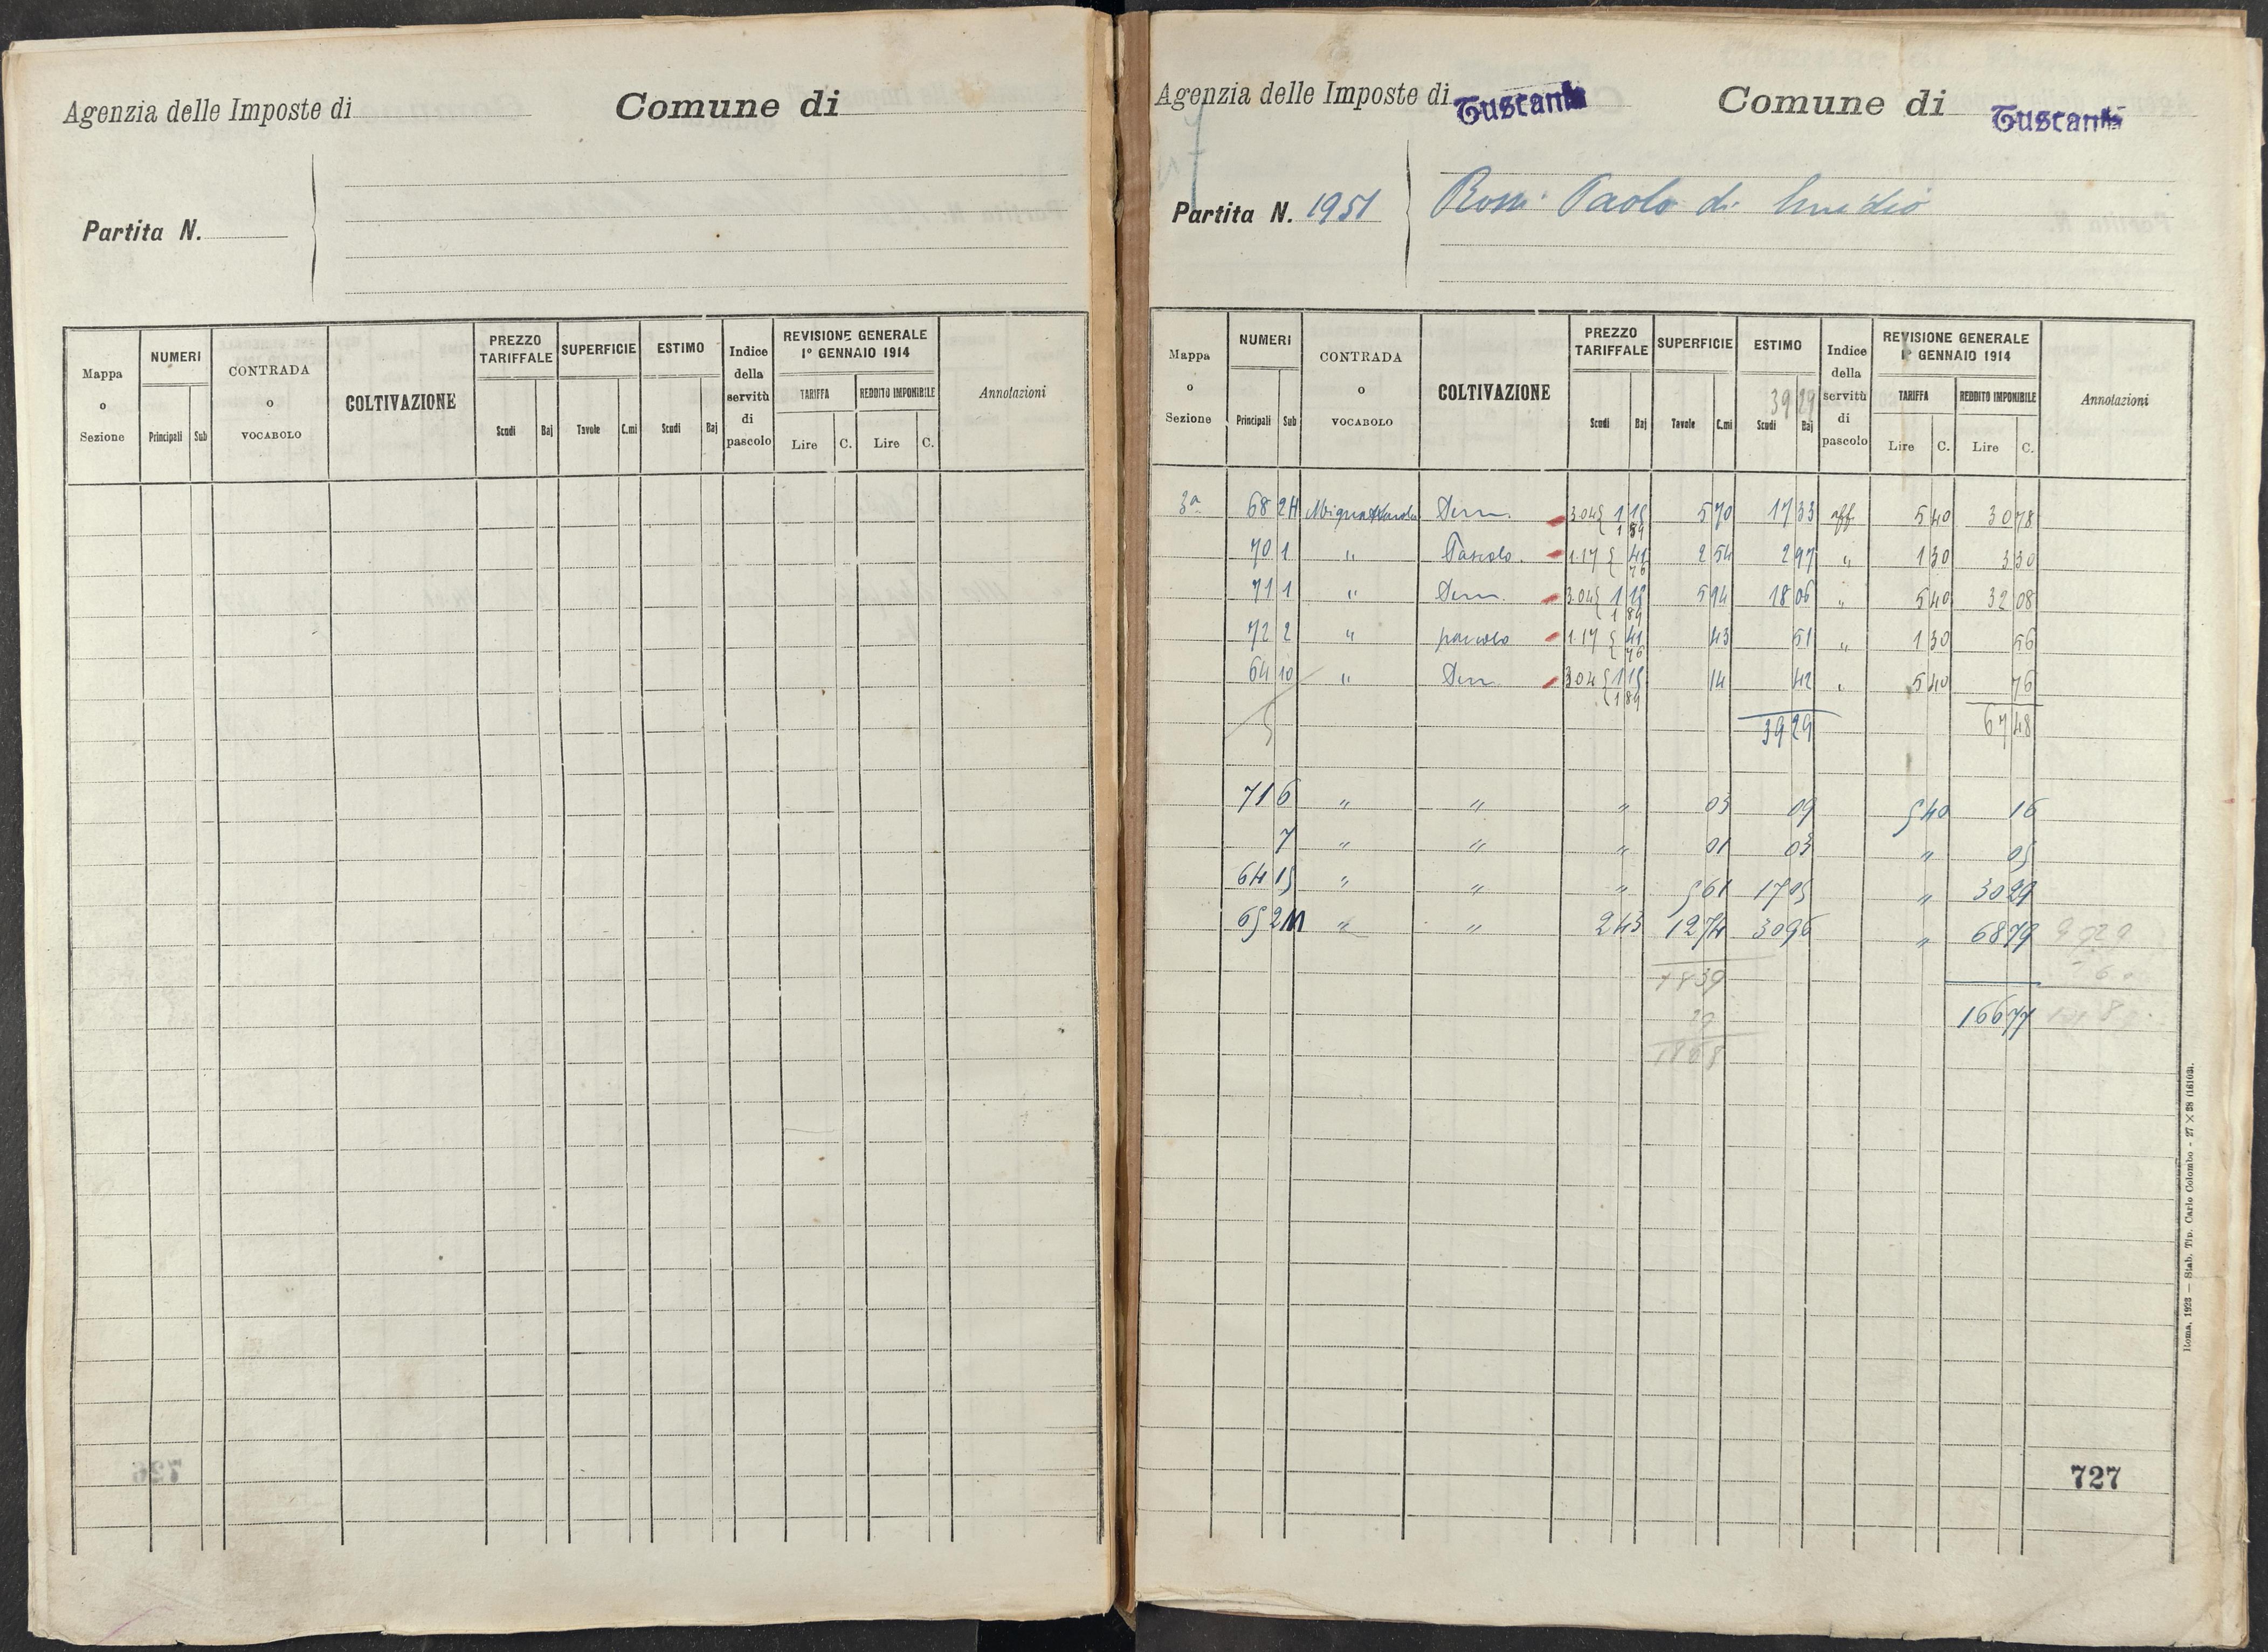 Agenzia delle Imposte di
Comune di
Partita N.
Mappa o Sezione
NUMERI
Principali Sub
CONTRADA O VOCABOLO
COLTIVAZIONE
PREZZO TARIFFALE
Scudi Baj
SUPERFICIE
Tavole C.mi
ESTIMO
Scudi Baj
Indice della servitù di pascolo
REVISIONE GENERALE
1º GENNAIO 1914
TARIFFA REDDITO IMPONIBILE
Lire C. Lire C.
Annotazioni
726
Agenzia delle Imposte di Tuscania
Comune di Tuscania
Partita N. 1951
Rossi Paolo di
Mappa o Sezione
NUMERI
Principali Sub
CONTRADA O VOCABOLO
COLTIVAZIONE
PREZZO TARIFFALE
Scudi Baj
SUPERFICIE
Tavole C.mi
ESTIMO
39 29
Scudi Baj
Indice della servitù di pascolo
REVISIONE GENERALE
1º GENNAIO 1914
TARIFFA REDDITO IMPONIBILE
Lire C. Lire C.
Annotazioni
3ª 68 2H Sem. 3.04 { 1 15 5 70 17 33 aff. 5 40 30 78
1 89
70 1 " Pascolo. 1.17 { 41 2 54 2 97 " 1 30 3 30
76
71 1 " Sem. 3.04 { 1 15 5 94 18 06 " 5 40 32 08
1 89
72 2 " pascolo 1.17 { 41 43 51 " 1 30 56
76
64 10 " Sem 3.04 { 1 15 14 42 " 5 40 76
1 89
5 39 29 67 48
71 6 " " " 03 09 5 40 16
7 " " " 01 03 " 05
64 15 " " " 5 61 17 05 " 30 29
65 2M " " 2 43 12 74 30 96 " 68 79
18 39
29
18 68
166 77
727
Roma, 1928 — Stab. Tip. Carlo Colombo - 27 × 38 (16103).